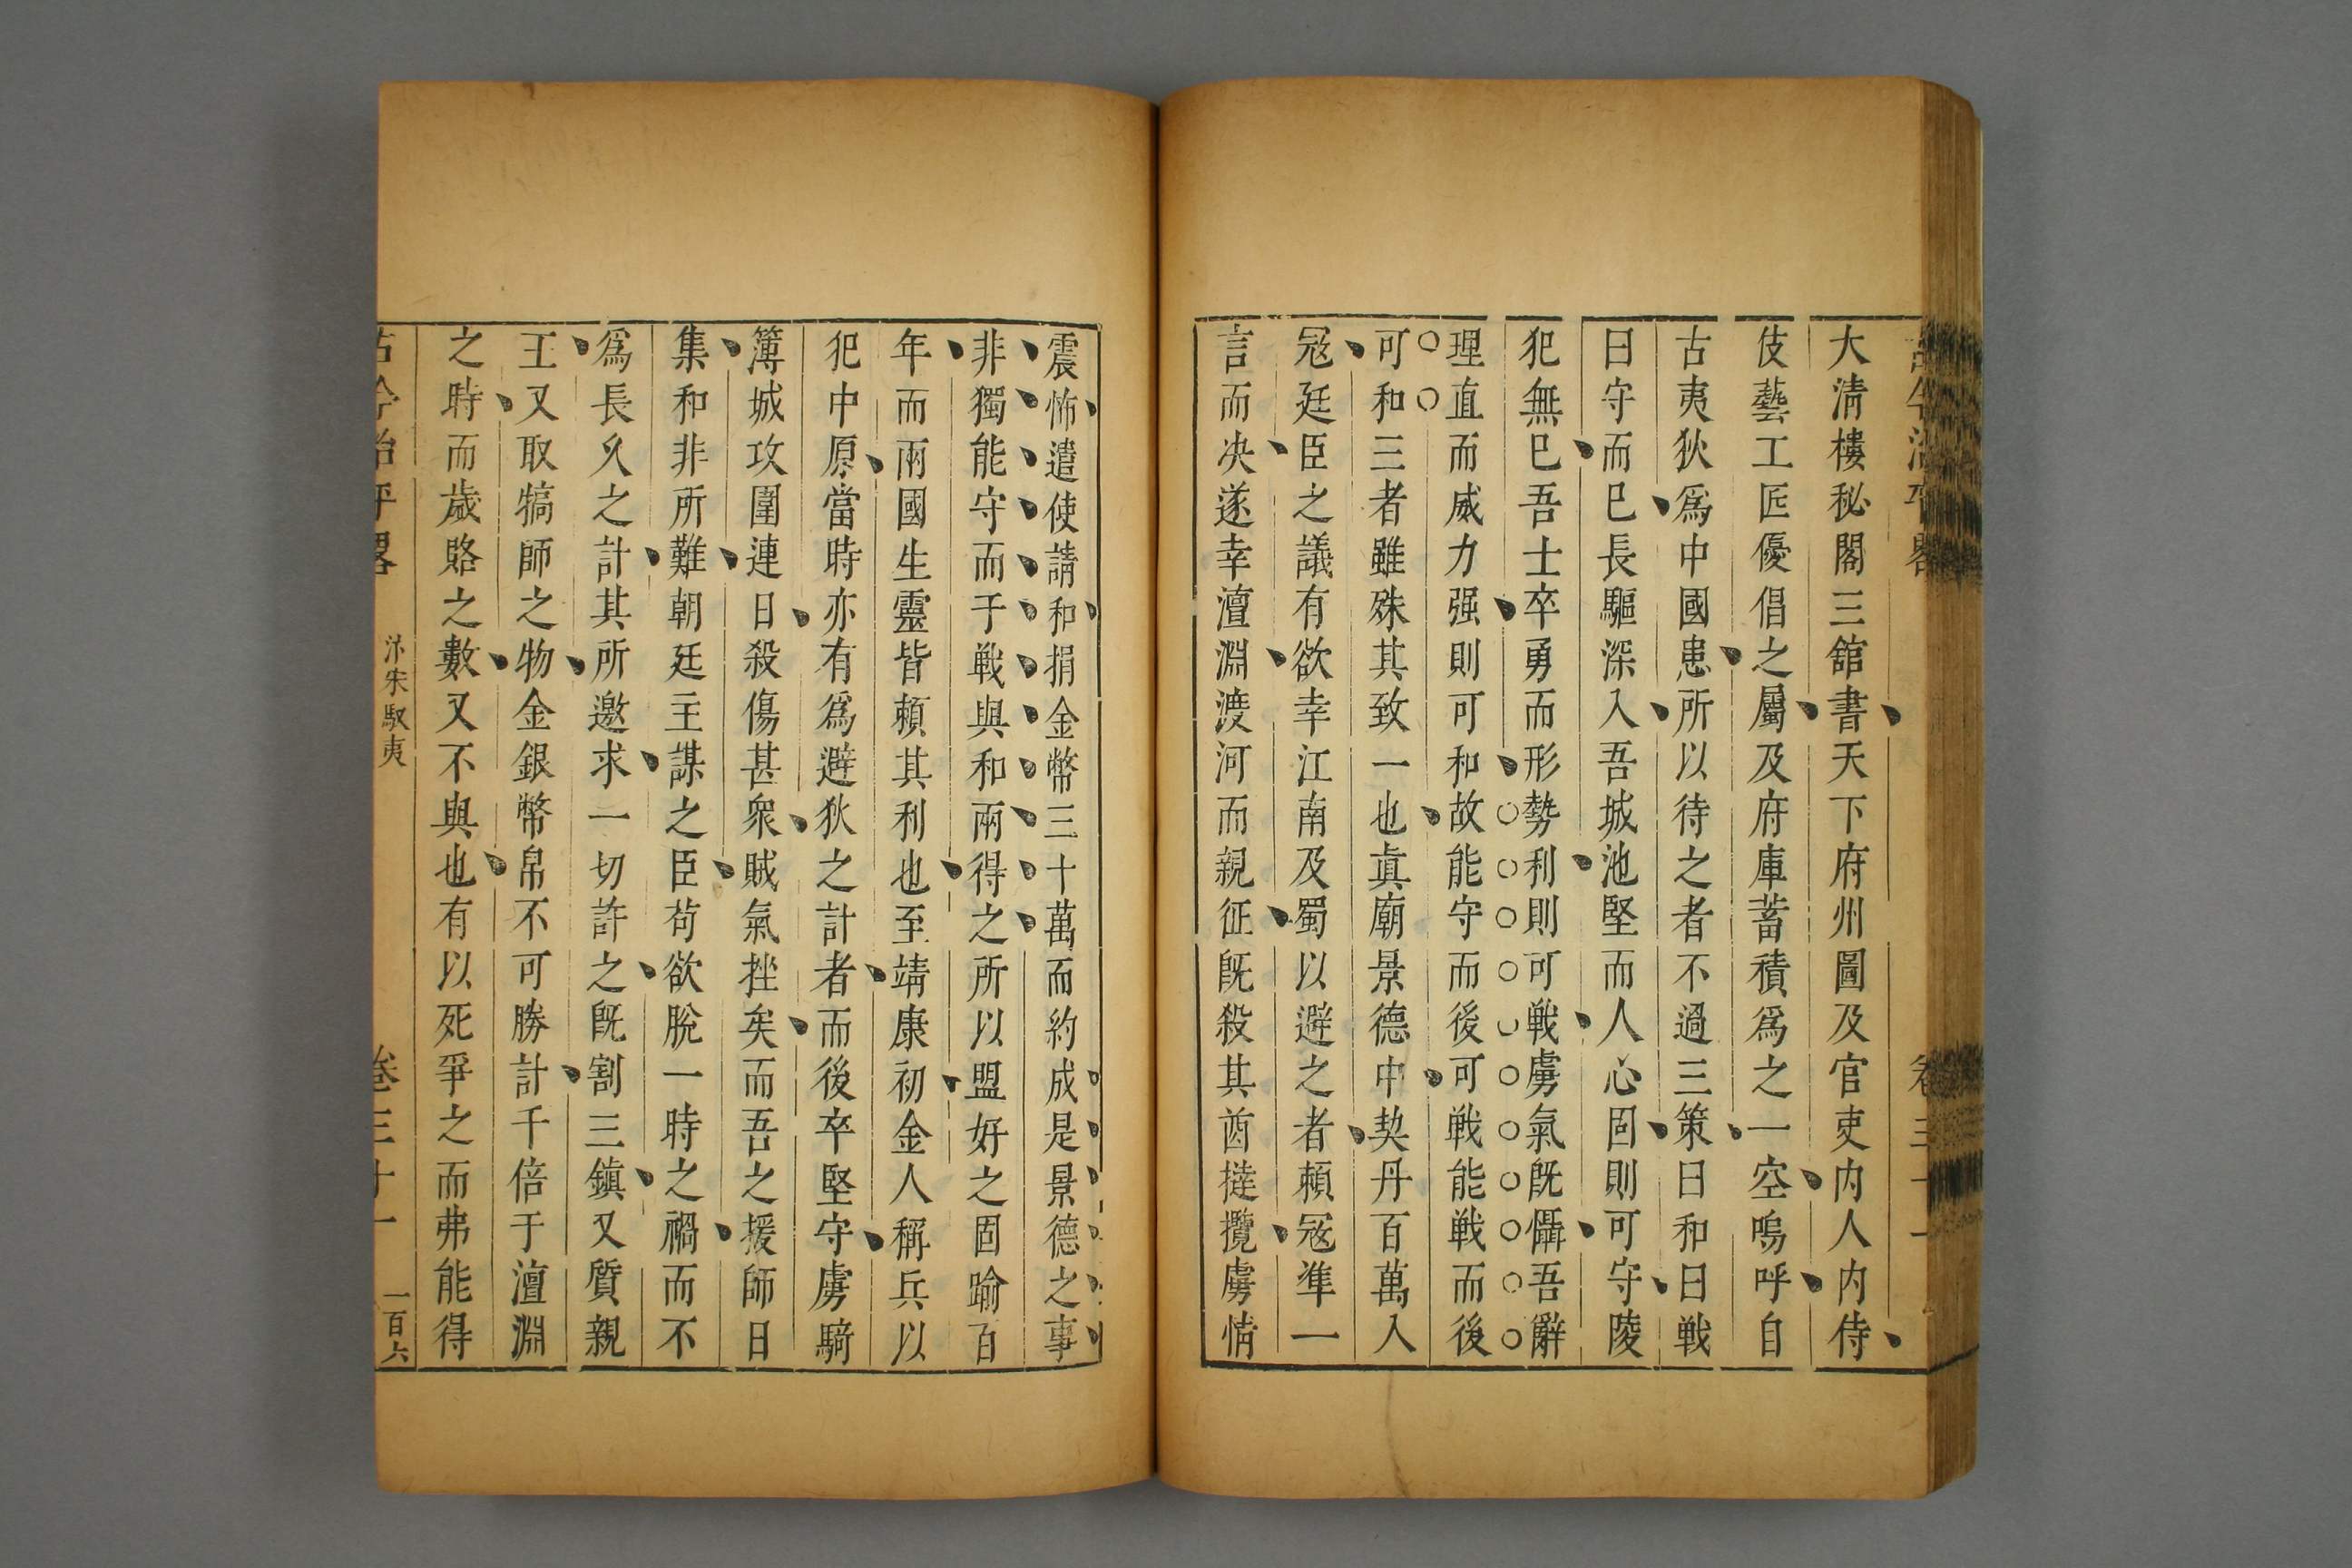 大清樓秘閣三舘書天下府州圖及官吏内人内侍
伎藝工匠優倡之屬及府庫蓄積爲之一空嗚呼自
古夷狄爲中國患所以待之者不過三策曰和曰戦
曰守而已長驅深入吾城池堅而人心固則可守陵
犯無已吾士卒勇而形勢利則可戦虜氣旣懾吾辭
理直而威力强則可和故能守而後可戦能戦而後
可和三者雖殊其致一也眞廟景德中契丹百萬入
冦廷臣之議有欲幸江南及蜀以避之者頼冦準一
言而决遂幸澶淵渡河而親征旣殺其酋撻攬虜情
震怖遣使請和捐金幣三十萬而約成是景德之事
非獨能守而于戦與和兩得之所以盟好之固踰百
年而兩國生靈皆頼其利也至靖康初金人稱兵以
犯中原當時亦有爲避狄之計者而後卒堅守虜騎
簿城攻圍連日殺傷甚衆賊氣挫矣而吾之援師日
集和非所難朝廷主謀之臣苟欲脫一時之禍而不
爲長久之計其所邀求一切許之旣割三鎮又質親
王又取犒師之物金銀幣帛不可勝計千倍于澶淵
之時而歲賂之數又不與也有以死爭之而弗能得
古今治平畧 汴宋馭夷 卷三十一 一百六